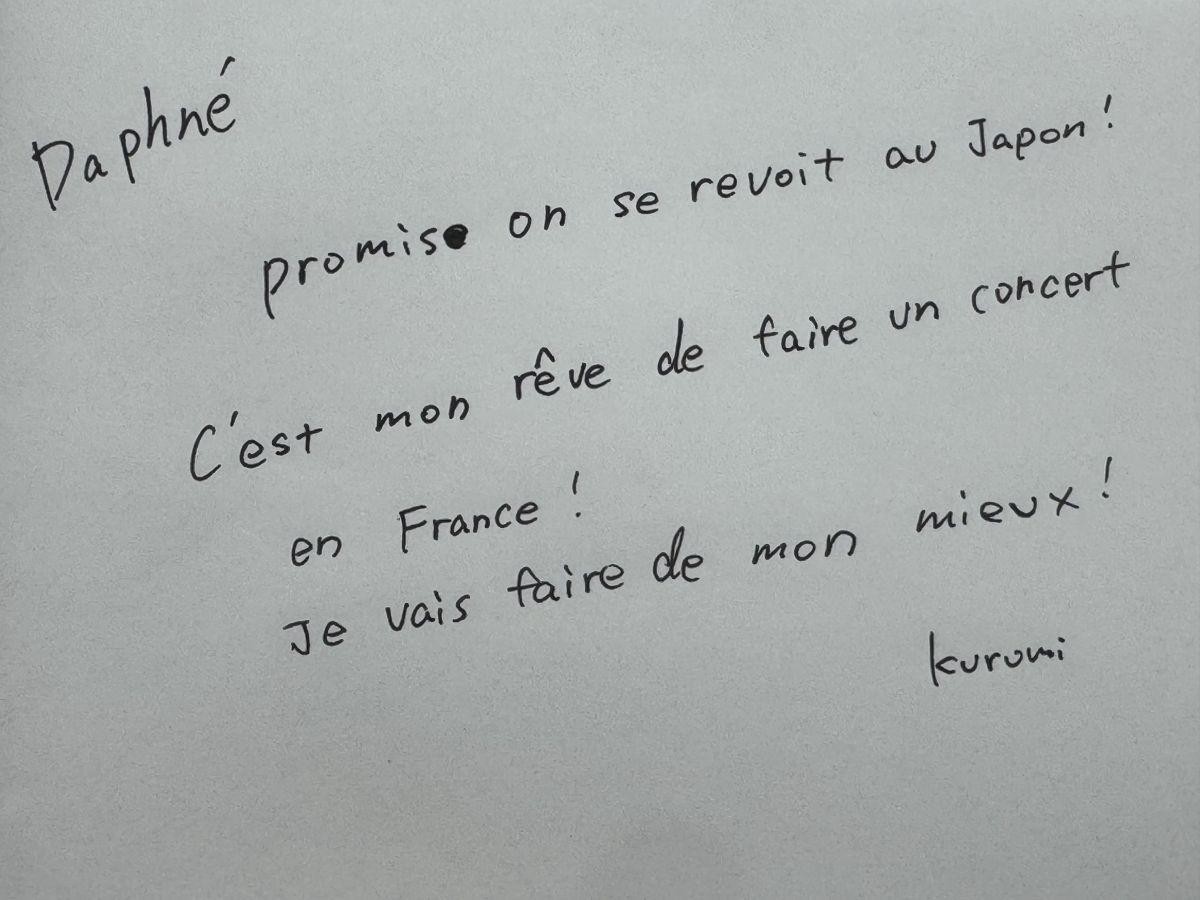 Daphné
promis on se revoit au Japon!
C'est mon rêve de faire un concert
en France!
Je vais faire de mon mieux!
kurumi